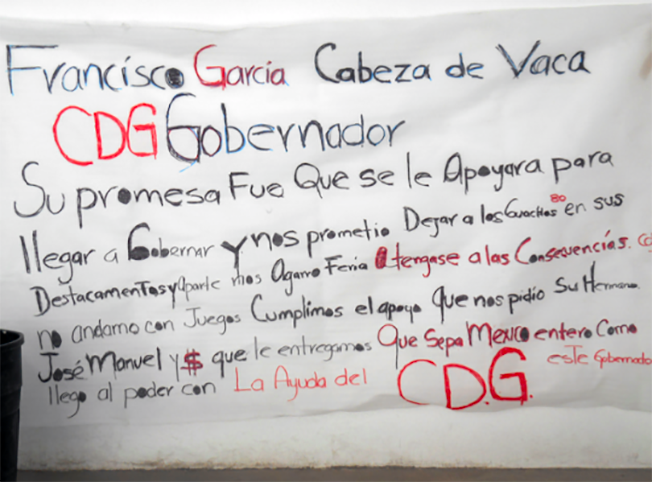 Francisco Garcia Cabeza de Vaca
CDG Gobernador
Su promesa Fue Que se le Apoyara para
llegar a Gobernar y nos prometio Dejar a los Guachos en sus
Destacamentos y Aparte nos Agarro Feria Atengase a las Consecuencias.
no andamo con Juegos Cumplimos el apoyo Que nos pidio Su Hermano
José Manuel y $ que le entregamos Que Sepa Mexico entero Como
llego al poder con La Ayuda del CD.G. esTe Gobernador